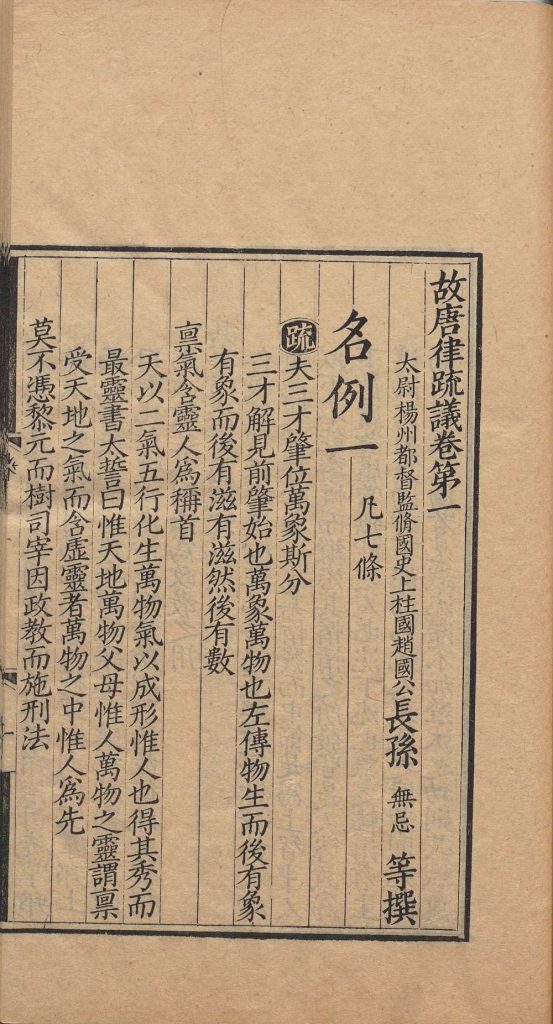 故唐律疏議卷第一
太尉楊州都督監脩國史上柱國趙國公長孫無忌等撰
名例一 凡七條
疏夫三才肇位萬象斯分
三才解見前肇始也萬象萬物也左傳物生而後有象
有象而後有滋有滋然後有數
禀氣含靈人爲稱首
天以二氣五行化生萬物氣以成形惟人也得其秀而
最靈書太誓曰惟天地萬物父母惟人萬物之靈謂禀
受天地之氣而含虛靈者萬物之中惟人爲先
莫不憑黎元而樹司宰因政教而施刑法